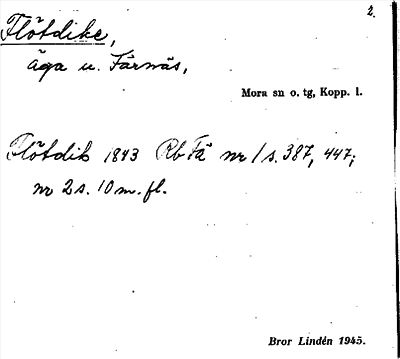 2.
Flötdike,
äga u. Färnäs,
Mora sn o. tg, Kopp. l.
Flötdik 1843 Rb Fä nr 1 s. 387, 447;
nr 2 s. 10 m. fl.
Bror Lindén 1945.